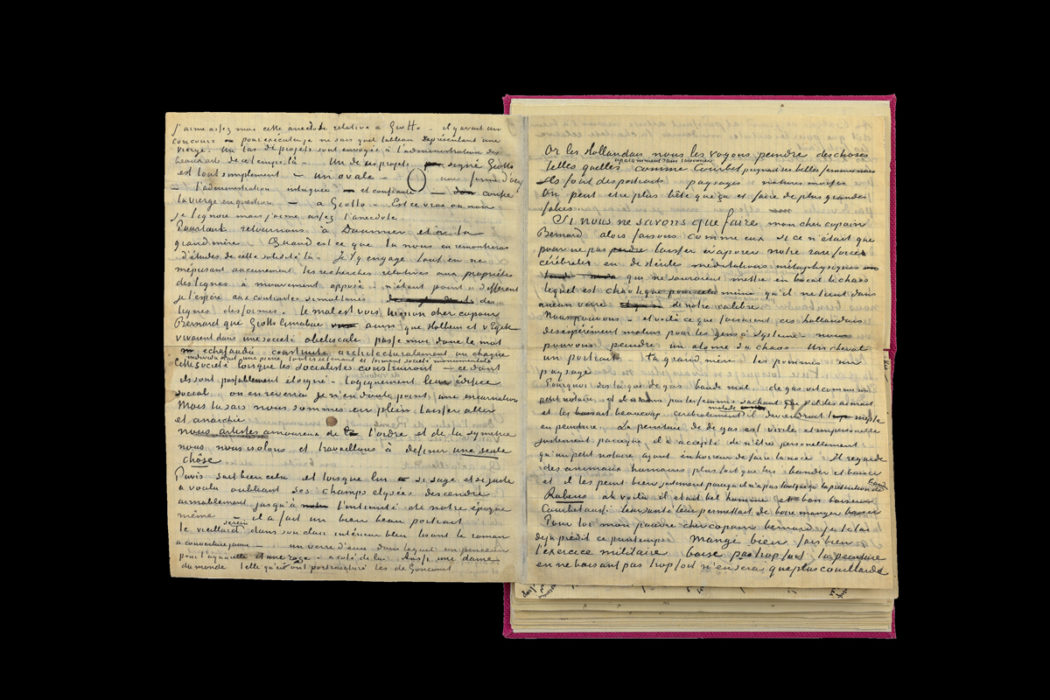 J'aime assez moi cette anecdote relative a Giotto il y avait un
concours pour exécution je ne sais quel tableau représentant une
vierge. Un tas de projets sont envoyés à l'administration des
beaux arts de ce temps là. Un de ces projets signé Giotto
est tout simplement – un ovale – une forme d'œuf
– l'administration intriguée et confiante – confie
la vierge en question – a Giotto. Est ce vrai ou non
je l'ignore mais j'aime assez l'anecdote
Pourtant retournons à Daumier et à ta
grand mère. Quand est ce que tu nous en remontreras
d'études de cette solidité là. Je t'y engage tout en ne
méprisant aucunement tes recherches relatives aux propriétés
des lignes à mouvement opposé – n'étant point indifférent
je l'espère aux contrastes simultanés des
lignes des formes. le mal est vois tu mon cher copain
Bernard que Giotto Cimabue ainsi que Holbein et v. Eyck
vivaient dans une société obeliscale passe moi donc le mot
echafaudée construite architecturalement ou chaque
individu etait une pierre, toutes se tenant et formant société monumentale
Cette société lorsque les socialistes construiront – ce dont
ils sont passablement eloignés – logiquement leur édifice
social on en reverra je n'en doute point, une incarnation
Mais tu sais nous sommes en plein laisser aller
et anarchie
nous artistes amoureux de l'ordre et de la symetrie
nous nous isolons et travaillons à definir une seule
chôse
Puvis sait bien cela et lorsque lui si sage et si juste
a voulu oubliant ses Champs elysées descendre
aimablement jusqu'à l'intimité de notre époque
même – il a fait un bien beau portrait
le vieillard serein dans son clair intérieur bleu lisant le roman
a couverture jaune – un verre d'eau dans lequel un pinceau
pour l'aquarelle et une rose à coté de lui. Aussi une dame
du monde telle qu'en ont portraituré les de Goncourt
Or les Hollandais nous les voyons peindre des choses
telles quelles apparemment sans raisonner comme Courbet peignait ses belles femmes nues
Ils font des portraits paysages natures mortes
On peut etre plus bête que ça et faire de plus grandes
folies
Si nous ne savons que faire mon cher copain
Bernard alors faisons comme eux si ce n'était que
pour ne pas laisser evaporer notre rare force
cérébrale en de stériles méditations métaphysiques
qui ne sauraient mettre en bocal le chaos
lequel est chaotique pour cela même qu'il ne tient dans
aucun verre de notre calibre
Nous pouvons – et voilà ce que faisaient ces hollandais
désespérément malins pour les gens à système – nous
pouvons peindre un atome du chaos. Un cheval
un portrait ta grand mère des pommes un
paysage
Pourquoi dis tu que de gas bande mal. de gas vit comme un
petit notaire et il n'aime pas les femmes sachant que s'il les aimait
et les baisait beaucoup cerebralement malade il deviendrait inepte
en peinture. La peinture de de gas est virile et impersonnelle
justement parceque il a accepté de n'être personnellement
qu'un petit notaire ayant en horreur de faire la noce. Il regarde
des animaux humains plus forts que lui bander et baiser
et il les peint bien justement parcequ'il n'a pas tant que ça la prétention de bander
Rubens ah voilà il était bel homme et bon baiseur
Courbet aussi leur santé leur permettait de boire manger baiser
Pour toi mon pauvre cher copain bernard je te l'ai
deja prédit ce printemps mange bien fais bien
l'exercice militaire baise pas trop fort ta peinture
en ne baisant pas trop fort n'en sera que plus couillarde